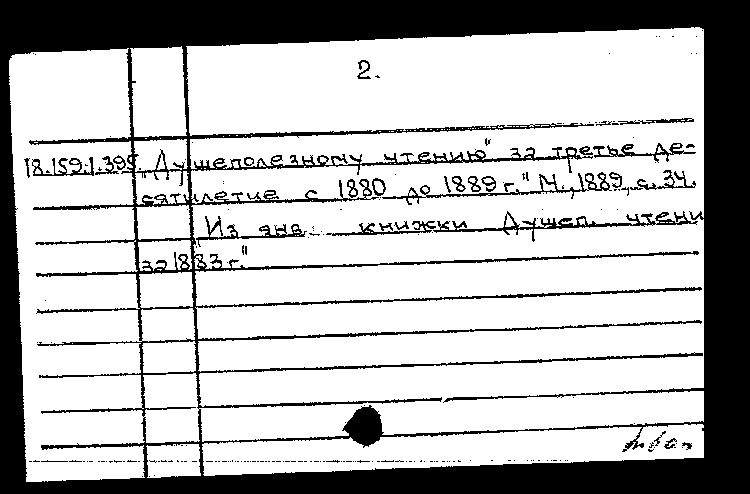 2.
18.159.1.395 „Душеполезному чтению" за третье де-
сятилетие с 1880 до 1889 г." М., 1889, с. 34.
„Из янв. книжки Душеп. чтени
за 1883 г."